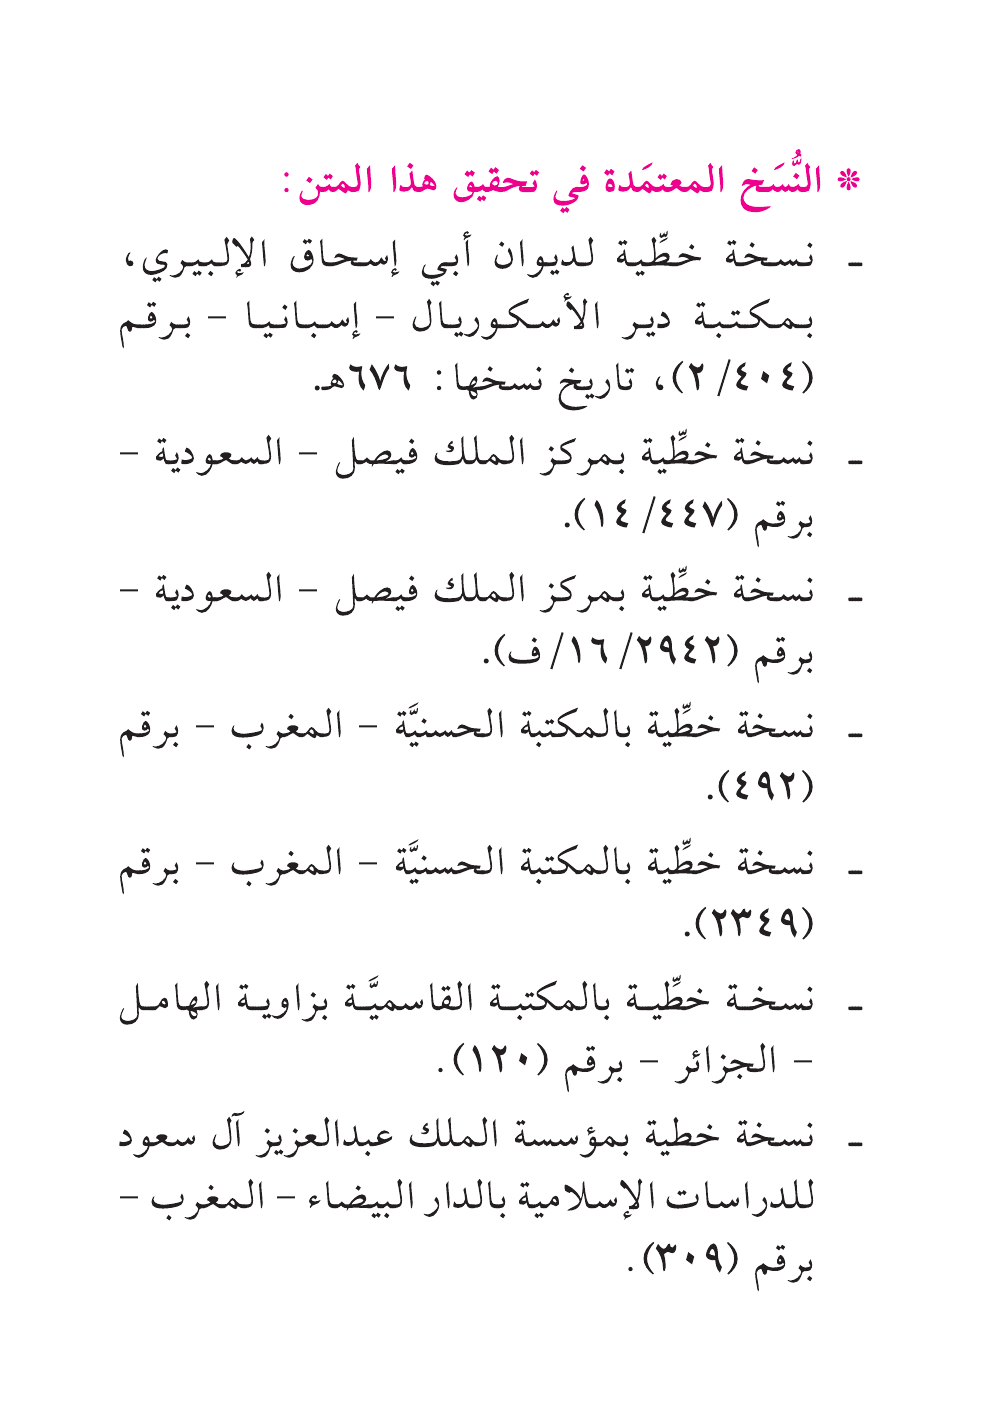 * النُّسَخ المعتمَدة في تحقيق هذا المتن:
ـ نسخة خطِّية لديوان أبي إسحاق الإلبيري،
بمكتبة دير الأسكوريال – إسبانيا – برقم
(٤٠٤/ ٢)، تاريخ نسخها: ٦٧٦هـ.
ـ نسخة خطِّية بمركز الملك فيصل – السعودية –
برقم (٤٤٧/ ١٤).
ـ نسخة خطِّية بمركز الملك فيصل – السعودية –
برقم (٢٩٤٢/ ١٦/ ف).
ـ نسخة خطِّية بالمكتبة الحسنيَّة – المغرب – برقم
(٤٩٢).
ـ نسخة خطِّية بالمكتبة الحسنيَّة – المغرب – برقم
(٢٣٤٩).
ـ نسخة خطِّية بالمكتبة القاسميَّة بزاوية الهامل
– الجزائر – برقم (١٢٠).
ـ نسخة خطية بمؤسسة الملك عبدالعزيز آل سعود
للدراسات الإسلامية بالدار البيضاء – المغرب –
برقم (٣٠٩).